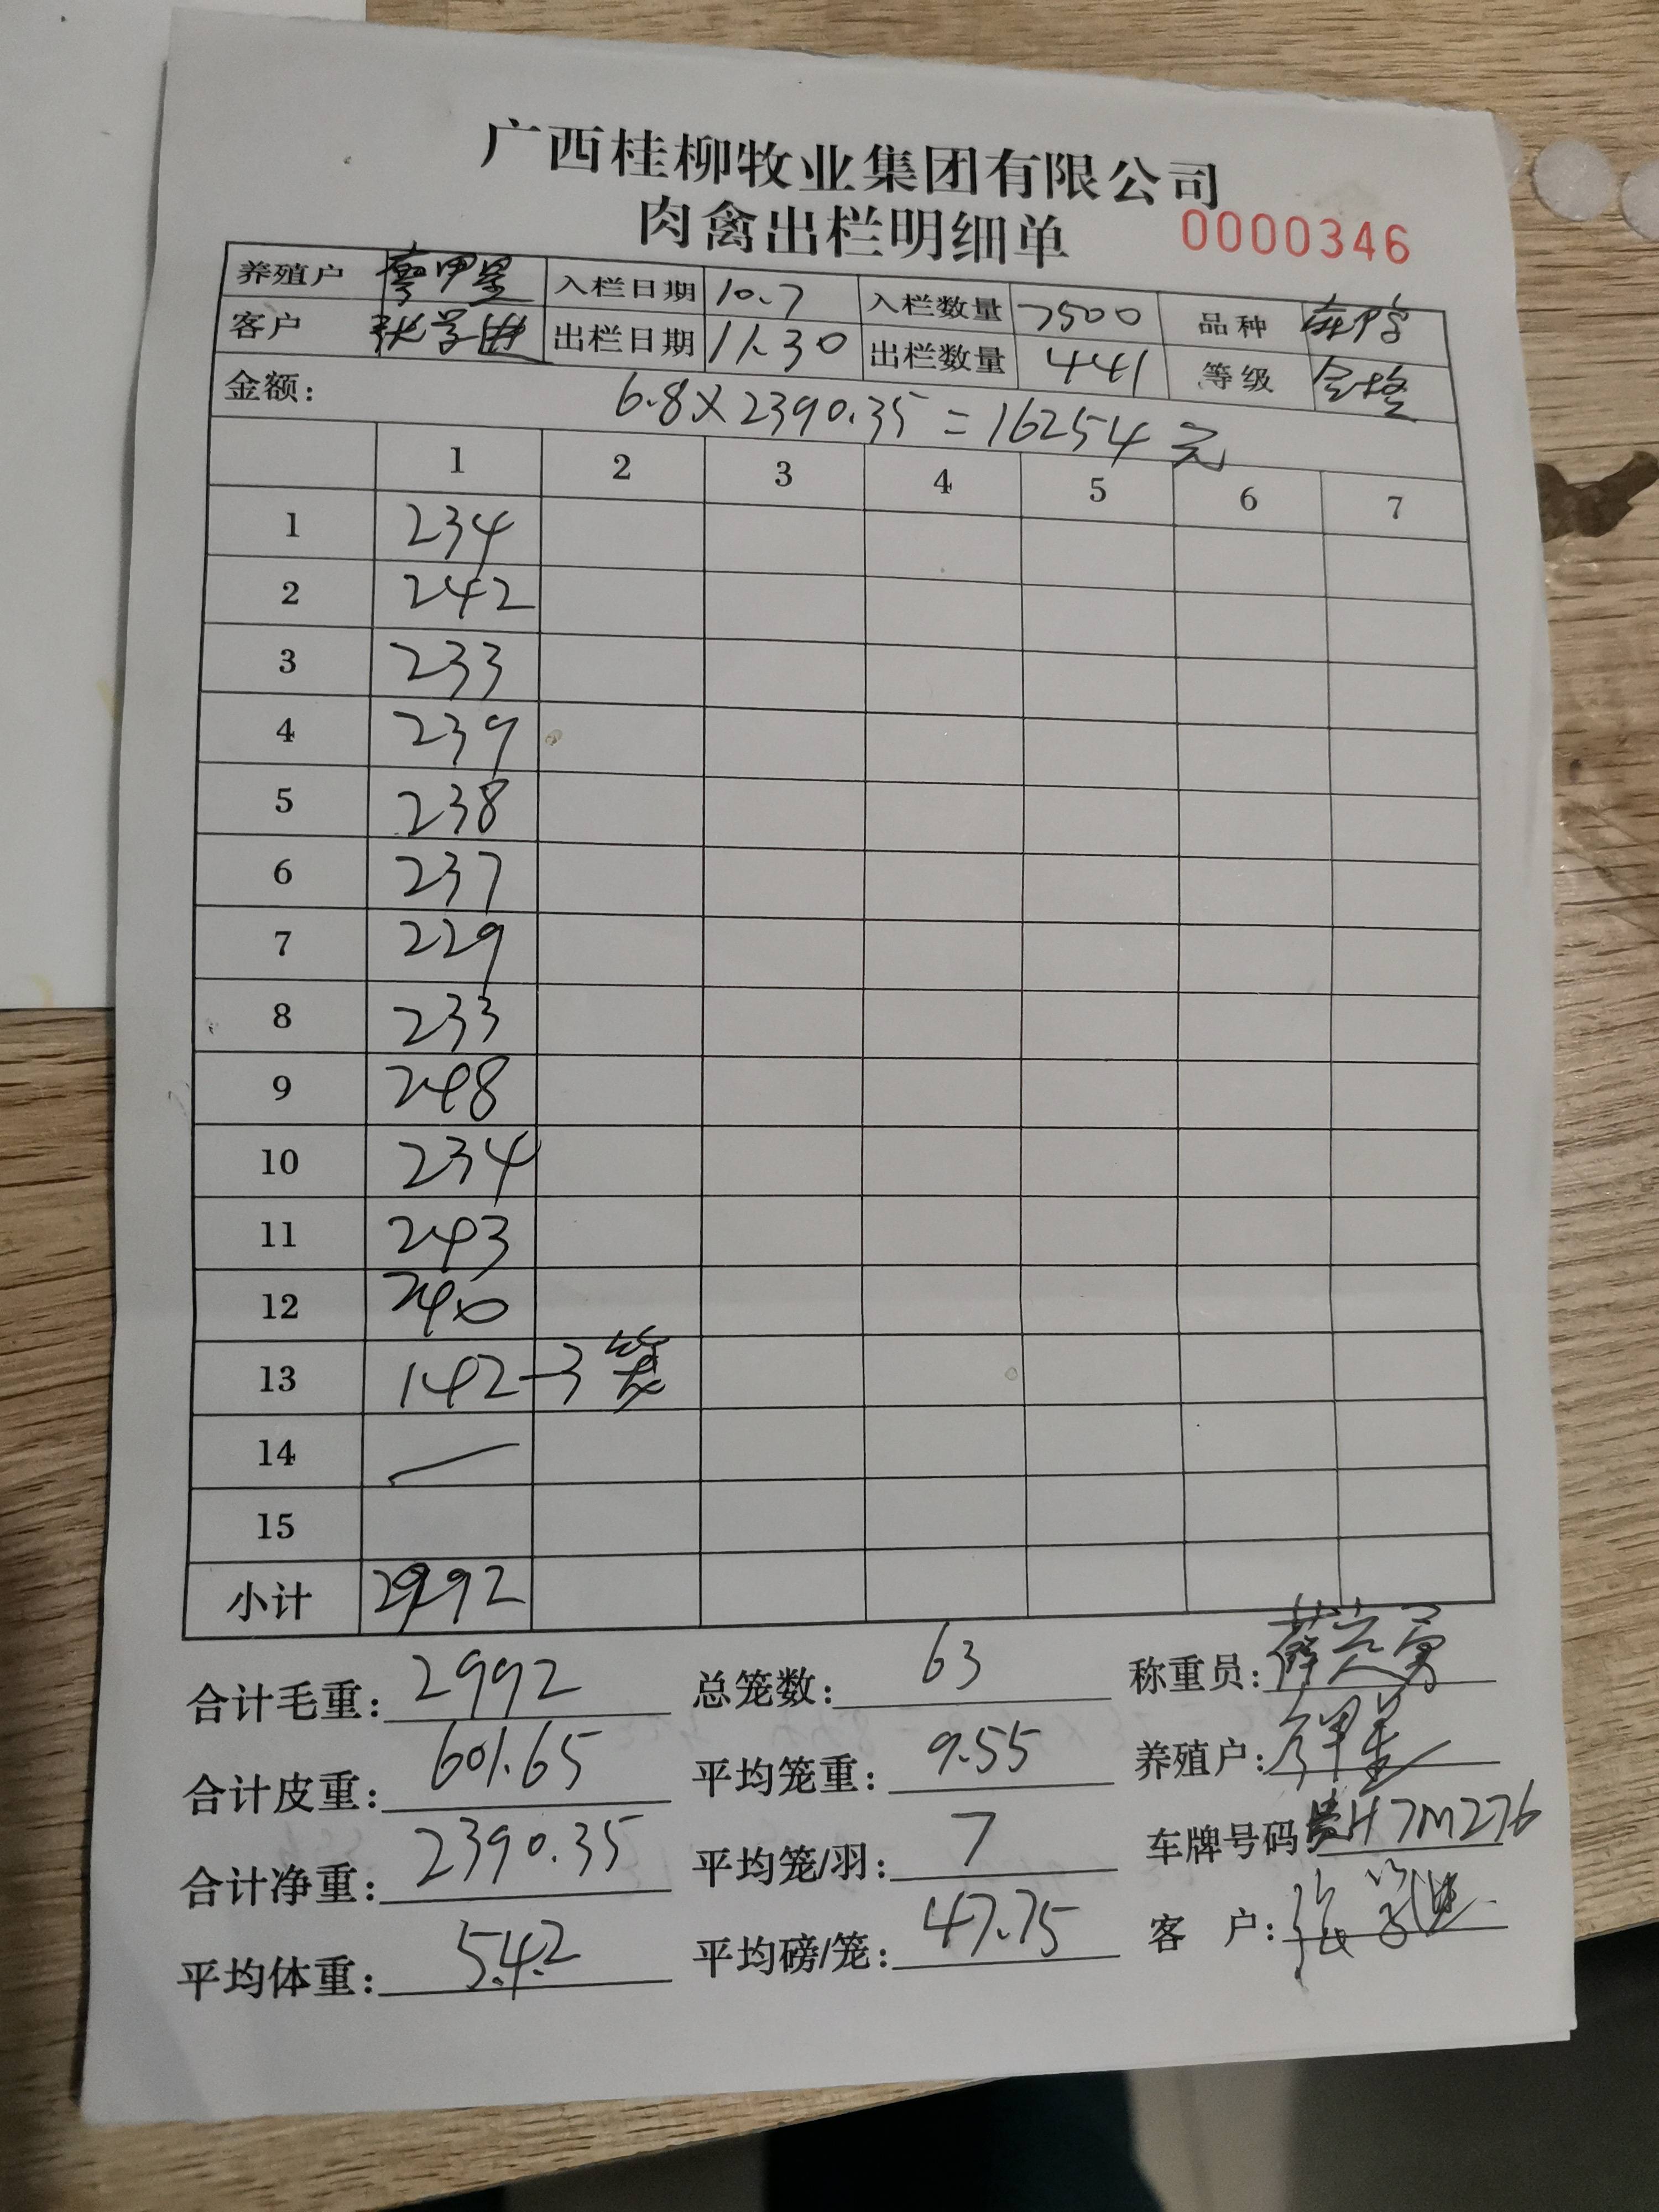 广西桂柳牧业集团有限公司
肉禽出栏明细单 0000346
养殖户 入栏日期 10.7 入栏数量 7500 品种
客户 出栏日期 11.30 出栏数量 441 等级 合格
金额: 6.8×2390.35=16254元
1 2 3 4 5 6 7
1 234
2 242
3 233
4 239
5 238
6 237
7 229
8 233
9 248
10 234
11 243
12 240
13 142-3笼
14
15
小计 2992
合计毛重: 2992 总笼数: 63 称重员:
合计皮重: 601.65 平均笼重: 9.55 养殖户:
合计净重: 2390.35 平均笼/羽: 7 车牌号码 贵H7M276
平均体重: 5.42 平均磅/笼: 47.75 客 户: